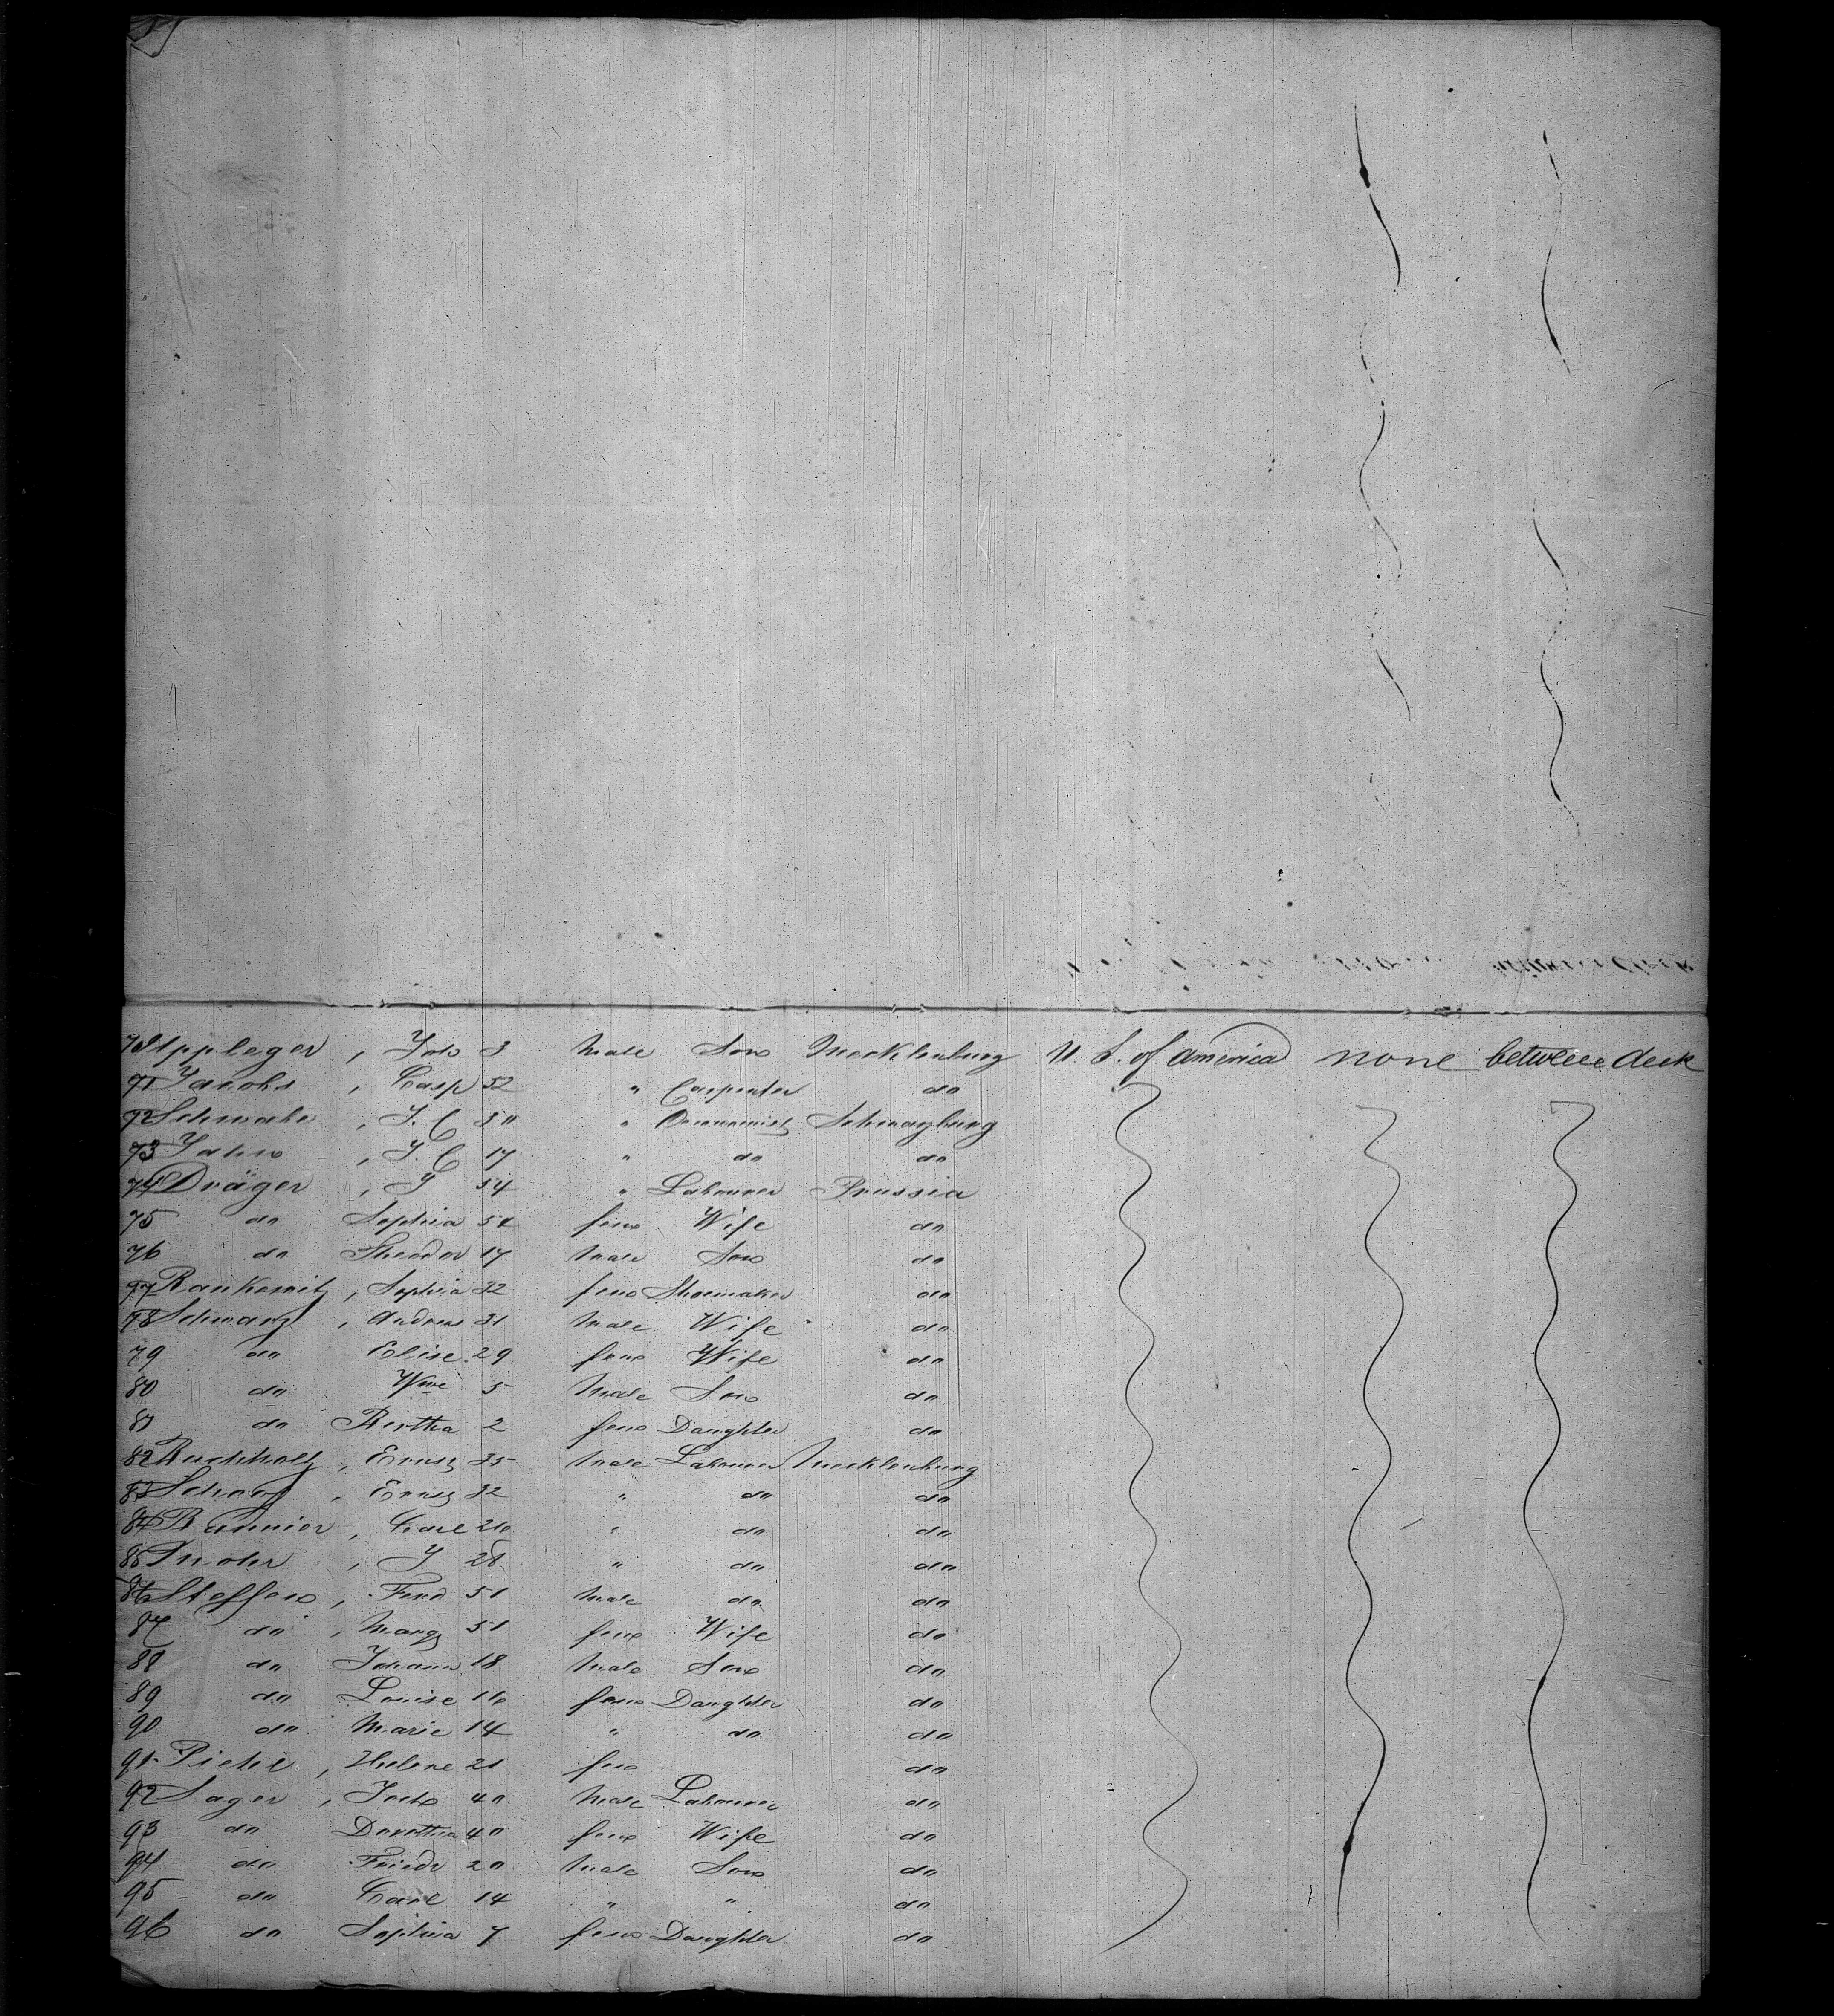 Ippleger, Joh 3 male Son Mecklenburg U. S. of America none between deck
71 Jacobs, Casp 52 " Carpenter do
72 J. C 30 " Oeconomist
73 Jahn, J. C 17 " do do
74 Dräger, J 54 " Labourer Prussia
75 do Sophia 54 fem Wife do
76 do Theodor 17 male Son do
77 Sophia 32 fem Shoemaker do
78 Schwarz, Andrew 31 male Wife do
79 do Elise 29 fem Wife do
80 do Wme 5 male Son do
81 do Bertha 2 fem Daughter do
82 Buchholtz, Ernst 35 male Labourer Mecklenburg
83 Ernst 32 " do do
84 Bannier, Carl " do do
85 J 28 " do do
86 Steffen, Ferd 51 male do do
87 do, Marg 51 fem Wife do
88 do Johann 18 male Son do
89 do Louise 16 fem Daughter do
90 do Marie 14 " do do
91 Piehl, Helene 21 fem do
92 Sager, Joch 40 male Labourer do
93 do Dorothea 40 fem Wife do
94 do Friedr 20 male Son do
95 do Carl 14 " " do
96 do Sophia 7 fem Daughter do